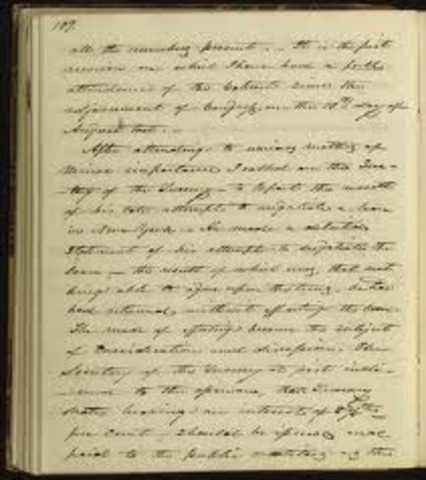 107
all the members present. It is the first
occasion on which I have had a full
attendance of the Cabinet since the
adjournment of Congress on the 10th day of
August last.
After attending to various matters of
minor importance I called on the Secre-
tary of the Treasury to report the result
of his late attempt to negotiate a loan
in New York. He made a detailed
Statement of his attempt to negotiate the
loan, the result of which was, that not
being able to agree upon the terms, he
had returned without effecting the loan.
The mode of effecting became the subject
of consideration and discussion. The
Secretary of the Treasury at first incli-
to the opinion, that Treasury
notes bearing an interest of
per cent, should be issued and
paid to the public